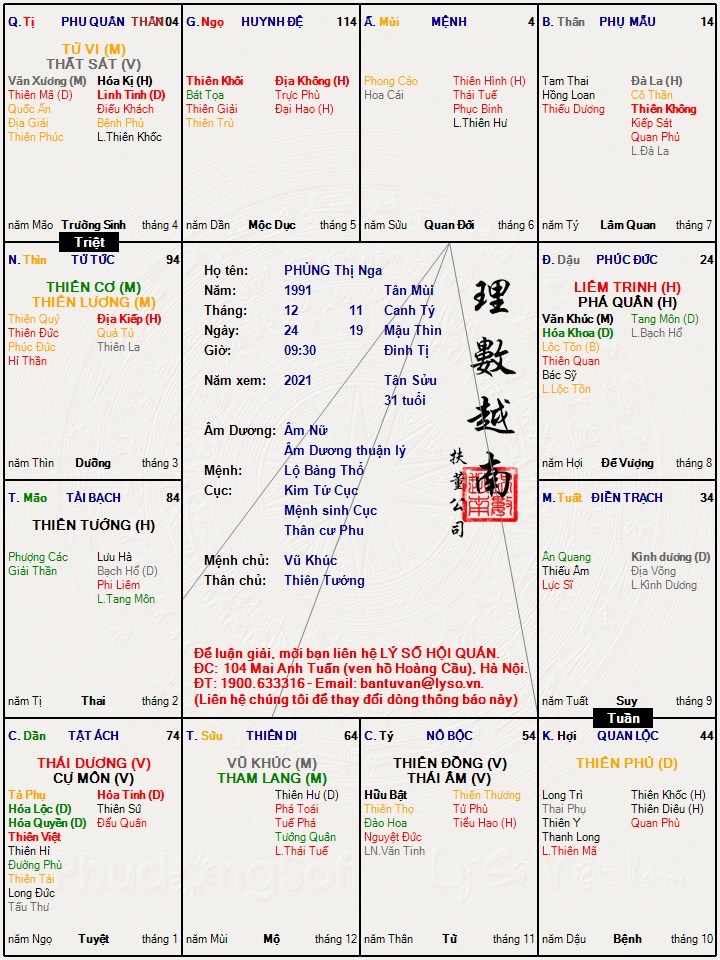 Q. Tị PHU QUÂN THÂN 104
TỬ VI (M)
THẤT SÁT (V)
Văn Xương (M) Hóa Kị (H)
Thiên Mã (D) Linh Tinh (D)
Quốc Ấn Điếu Khách
Địa Giải Bệnh Phù
Thiên Phúc L.Thiên Khốc
năm Mão Trường Sinh tháng 4
G. Ngọ HUYNH ĐỆ 114
Thiên Khôi Địa Không (H)
Bát Tọa Trực Phù
Thiên Giải Đại Hao (H)
Thiên Trù
năm Dần Mộc Dục tháng 5
Ấ. Mùi MỆNH 4
Phong Cáo Thiên Hình (H)
Hoa Cái Thái Tuế
Phục Binh
L.Thiên Hư
năm Sửu Quan Đới tháng 6
B. Thân PHỤ MẪU 14
Tam Thai Đà La (H)
Hồng Loan Cô Thần
Thiếu Dương Thiên Không
Kiếp Sát
Quan Phủ
L.Đà La
năm Tý Lâm Quan tháng 7
Triệt
N. Thìn TỬ TỨC 94
THIÊN CƠ (M)
THIÊN LƯƠNG (M)
Thiên Quý Địa Kiếp (H)
Thiên Đức Quả Tú
Phúc Đức Thiên La
Hỉ Thần
năm Thìn Dưỡng tháng 3
Họ tên: PHÙNG Thị Nga
Năm: 1991 Tân Mùi
Tháng: 12 11 Canh Tý
Ngày: 24 19 Mậu Thìn
Giờ: 09:30 Đinh Tị
Năm xem: 2021 Tân Sửu
31 tuổi
Âm Dương: Âm Nữ
Âm Dương thuận lý
Mệnh: Lộ Bàng Thổ
Cục: Kim Tứ Cục
Mệnh sinh Cục
Thân cư Phu
Mệnh chủ: Vũ Khúc
Thân chủ: Thiên Tướng
理數越南
扶董公司
Để luận giải, mời bạn liên hệ LÝ SỐ HỘI QUÁN.
ĐC: 104 Mai Anh Tuấn (ven hồ Hoàng Cầu), Hà Nội.
ĐT: 1900.633316 - Email: bantuvan@lyso.vn.
(Liên hệ chúng tôi để thay đổi dòng thông báo này)
Đ. Dậu PHÚC ĐỨC 24
LIÊM TRINH (H)
PHÁ QUÂN (H)
Văn Khúc (M) Tang Môn (D)
Hóa Khoa (D) L.Bạch Hổ
Lộc Tồn (B)
Thiên Quan
Bác Sỹ
L.Lộc Tồn
năm Hợi Đế Vượng tháng 8
T. Mão TÀI BẠCH 84
THIÊN TƯỚNG (H)
Phượng Các Lưu Hà
Giải Thần Bạch Hổ (D)
Phi Liêm
L.Tang Môn
năm Tị Thai tháng 2
M. Tuất ĐIỀN TRẠCH 34
Ân Quang Kình dương (D)
Thiếu Âm Địa Võng
Lực Sĩ L.Kình Dương
năm Tuất Suy tháng 9
Tuần
C. Dần TẬT ÁCH 74
THÁI DƯƠNG (V)
CỰ MÔN (V)
Tả Phụ Hỏa Tinh (D)
Hóa Lộc (D) Thiên Sứ
Hóa Quyền (D) Đẩu Quân
Thiên Việt
Thiên Hỉ
Đường Phù
Thiên Tài
Long Đức
Tấu Thư
năm Ngọ Tuyệt tháng 1
T. Sửu THIÊN DI 64
VŨ KHÚC (M)
THAM LANG (M)
Thiên Hư (D)
Phá Toái
Tuế Phá
Tướng Quân
L.Thái Tuế
năm Mùi Mộ tháng 12
C. Tý NÔ BỘC 54
THIÊN ĐỒNG (V)
THÁI ÂM (V)
Hữu Bật Thiên Thương
Thiên Thọ Tử Phù
Đào Hoa Tiểu Hao (H)
Nguyệt Đức
LN.Văn Tinh
năm Thân Tử tháng 11
K. Hợi QUAN LỘC 44
THIÊN PHỦ (D)
Long Trì Thiên Khốc (H)
Thai Phụ Thiên Diêu (H)
Thiên Y Quan Phù
Thanh Long
L.Thiên Mã
năm Dậu Bệnh tháng 10